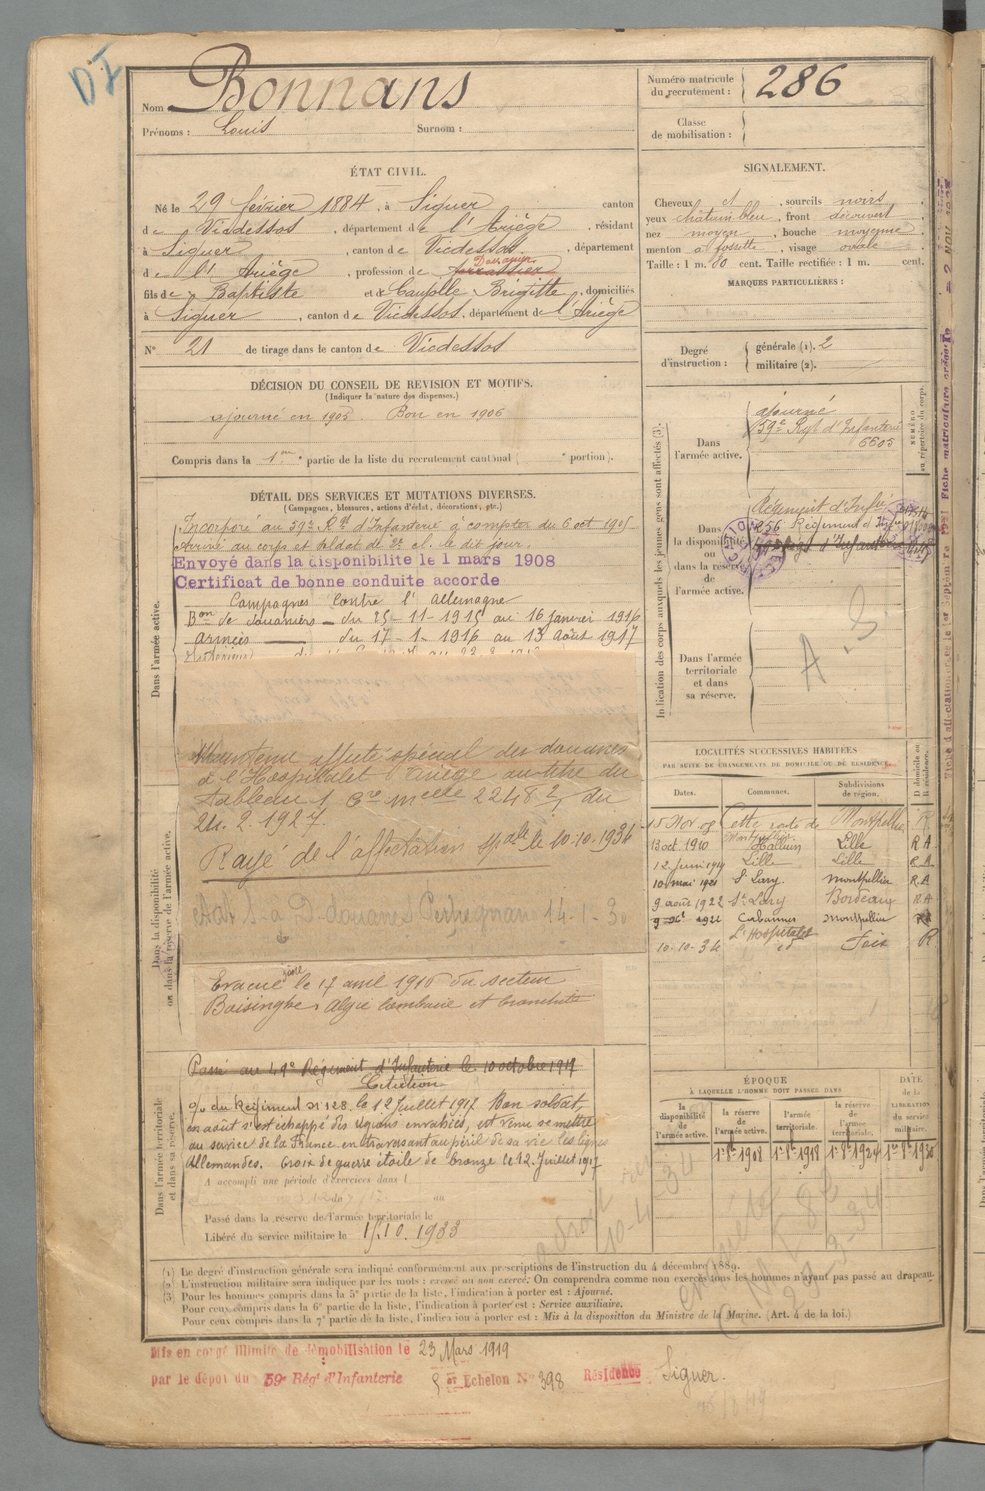 DI
Nom Bonnans
Prénoms : Louis Surnom :
Numéro matricule du recrutement : 286
Classe de mobilisation :
ÉTAT CIVIL.
Né le 29 février 1884, à Siguer canton
de Vicdessos, département de l'Ariège, résidant
à Siguer, canton de Vicdessos, département
de l'Ariège, profession de
fils de Baptiste et de Brigitte, domiciliés
à Siguer, canton de Vicdessos, département de l'Ariège
N° 21 de tirage dans le canton de Vicdessos
SIGNALEMENT.
Cheveux et, sourcils noirs
yeux chatain bleu, front découvert
nez moyen, bouche moyenne
menton à fossette, visage ovale
Taille : 1 m. 80 cent. Taille rectifiée : 1 m. cent.
MARQUES PARTICULIÈRES :
Degré d'instruction : générale (1). 2
militaire (2).
DÉCISION DU CONSEIL DE REVISION ET MOTIFS.
(Indiquer la nature des dispenses.)
ajourné en 1905 Bon en 1906
Compris dans la 1re partie de la liste du recrutement cantonal ( portion).
DÉTAIL DES SERVICES ET MUTATIONS DIVERSES.
(Campagnes, blessures, actions d'éclat, décorations, etc.)
Dans l'armée active.
Incorporé au 59e Rgt d'Infanterie à compter du 6 oct 190
Arrivé au corps et soldat de 2e cl. le dit jour.
Envoyé dans la disponibilité le 1 mars 1908
Certificat de bonne conduite accordé
Campagnes Contre l'Allemagne
Bon de douaniers du 25-11-1915 au 16 janvier 1916
Armées du 17-1-1916 au 13 Août 1917
Dans la disponibilité ou dans la réserve de l'armée active.
Maintenu affecté spécial des douanes
à l'Hospitalet Ariège au titre du
tableau 1 Cre Mcelle 2248 du
24.2.1927.
Rayé de l'affectation spale le 10-10-1936
douanes Perpignan 14-1-3
Evacué le 17 avril 1916 du secteur
Boisinghe, Algie lombaire et bronchite
Dans l'armée territoriale et dans sa réserve.
Passé au 49e Régiment d'Infanterie le 10 octobre 1917
Citation
o/o du Régiment N° 128 le 12 Juillet 1917. Bon soldat,
en août s'est échappé des régions envahies, est venu se mettre
au service de la France en traversant au péril de sa vie les lignes
Allemandes. Croix de guerre étoile de bronze le 12 Juillet 1917
A accompli une période d'exercices dans l
du au
Passé dans la réserve de l'armée territoriale le
Libéré du service militaire le 1/10.1933
Indication des corps auxquels les jeunes gens sont affectés (3).
NUMÉRO au répertoire du corps.
Dans l'armée active.
ajourné
59e Rgt d'Infanterie
6605
Dans la disponibilité ou dans la réserve de l'armée active.
Régiment d'Infie
R 56 Régiment d'
d'Infanterie
Dans l'armée territoriale et dans sa réserve.
A.S.
LOCALITÉS SUCCESSIVES HABITÉES
PAR SUITE DE CHANGEMENTS DE DOMICILE OU DE RÉSIDENCE.
Dates. Communes. Subdivisions de région. D domicile ou R résidence.
15 Nov 08 Cette route de Montpellier R
13 oct. 1910 Halluin Lille R A
12 Juin 1919 Lille Lille R A
10 mai 1921 St Lary Montpellier R A
9 août 1922 St Lary Bordeaux R A
1922 Cabannes Montpellier RA
10-10-34 L'Hospitalet id Foix R
ÉPOQUE À LAQUELLE L'HOMME DOIT PASSER DANS
DATE de la LIBÉRATION du service militaire.
la disponibilité de l'armée active. la réserve de l'armée active. l'armée territoriale. la réserve de l'armée territoriale.
1er 8bre 1908 1er 8bre 1918 1er 8bre 1924 1er 8bre 1930
(1) Le degré d'instruction générale sera indiqué conformément aux prescriptions de l'instruction du 4 décembre 1889.
(2) L'instruction militaire sera indiquée par les mots : exercé ou non exercé. On comprendra comme non exercés tous les hommes n'ayant pas passé au drapeau.
(3) Pour les hommes compris dans la 5e partie de la liste, l'indication à porter est : Ajourné.
Pour ceux compris dans la 6e partie de la liste, l'indication à porter est : Service auxiliaire.
Pour ceux compris dans la 7e partie de la liste, l'indication à porter est : Mis à la disposition du Ministre de la Marine. (Art. 4 de la loi.)
Mis en congé illimité de démobilisation le 23 Mars 1919
par le dépôt du 59e Régt d'Infanterie 5 Echelon N° 398 Résidence Siguer.